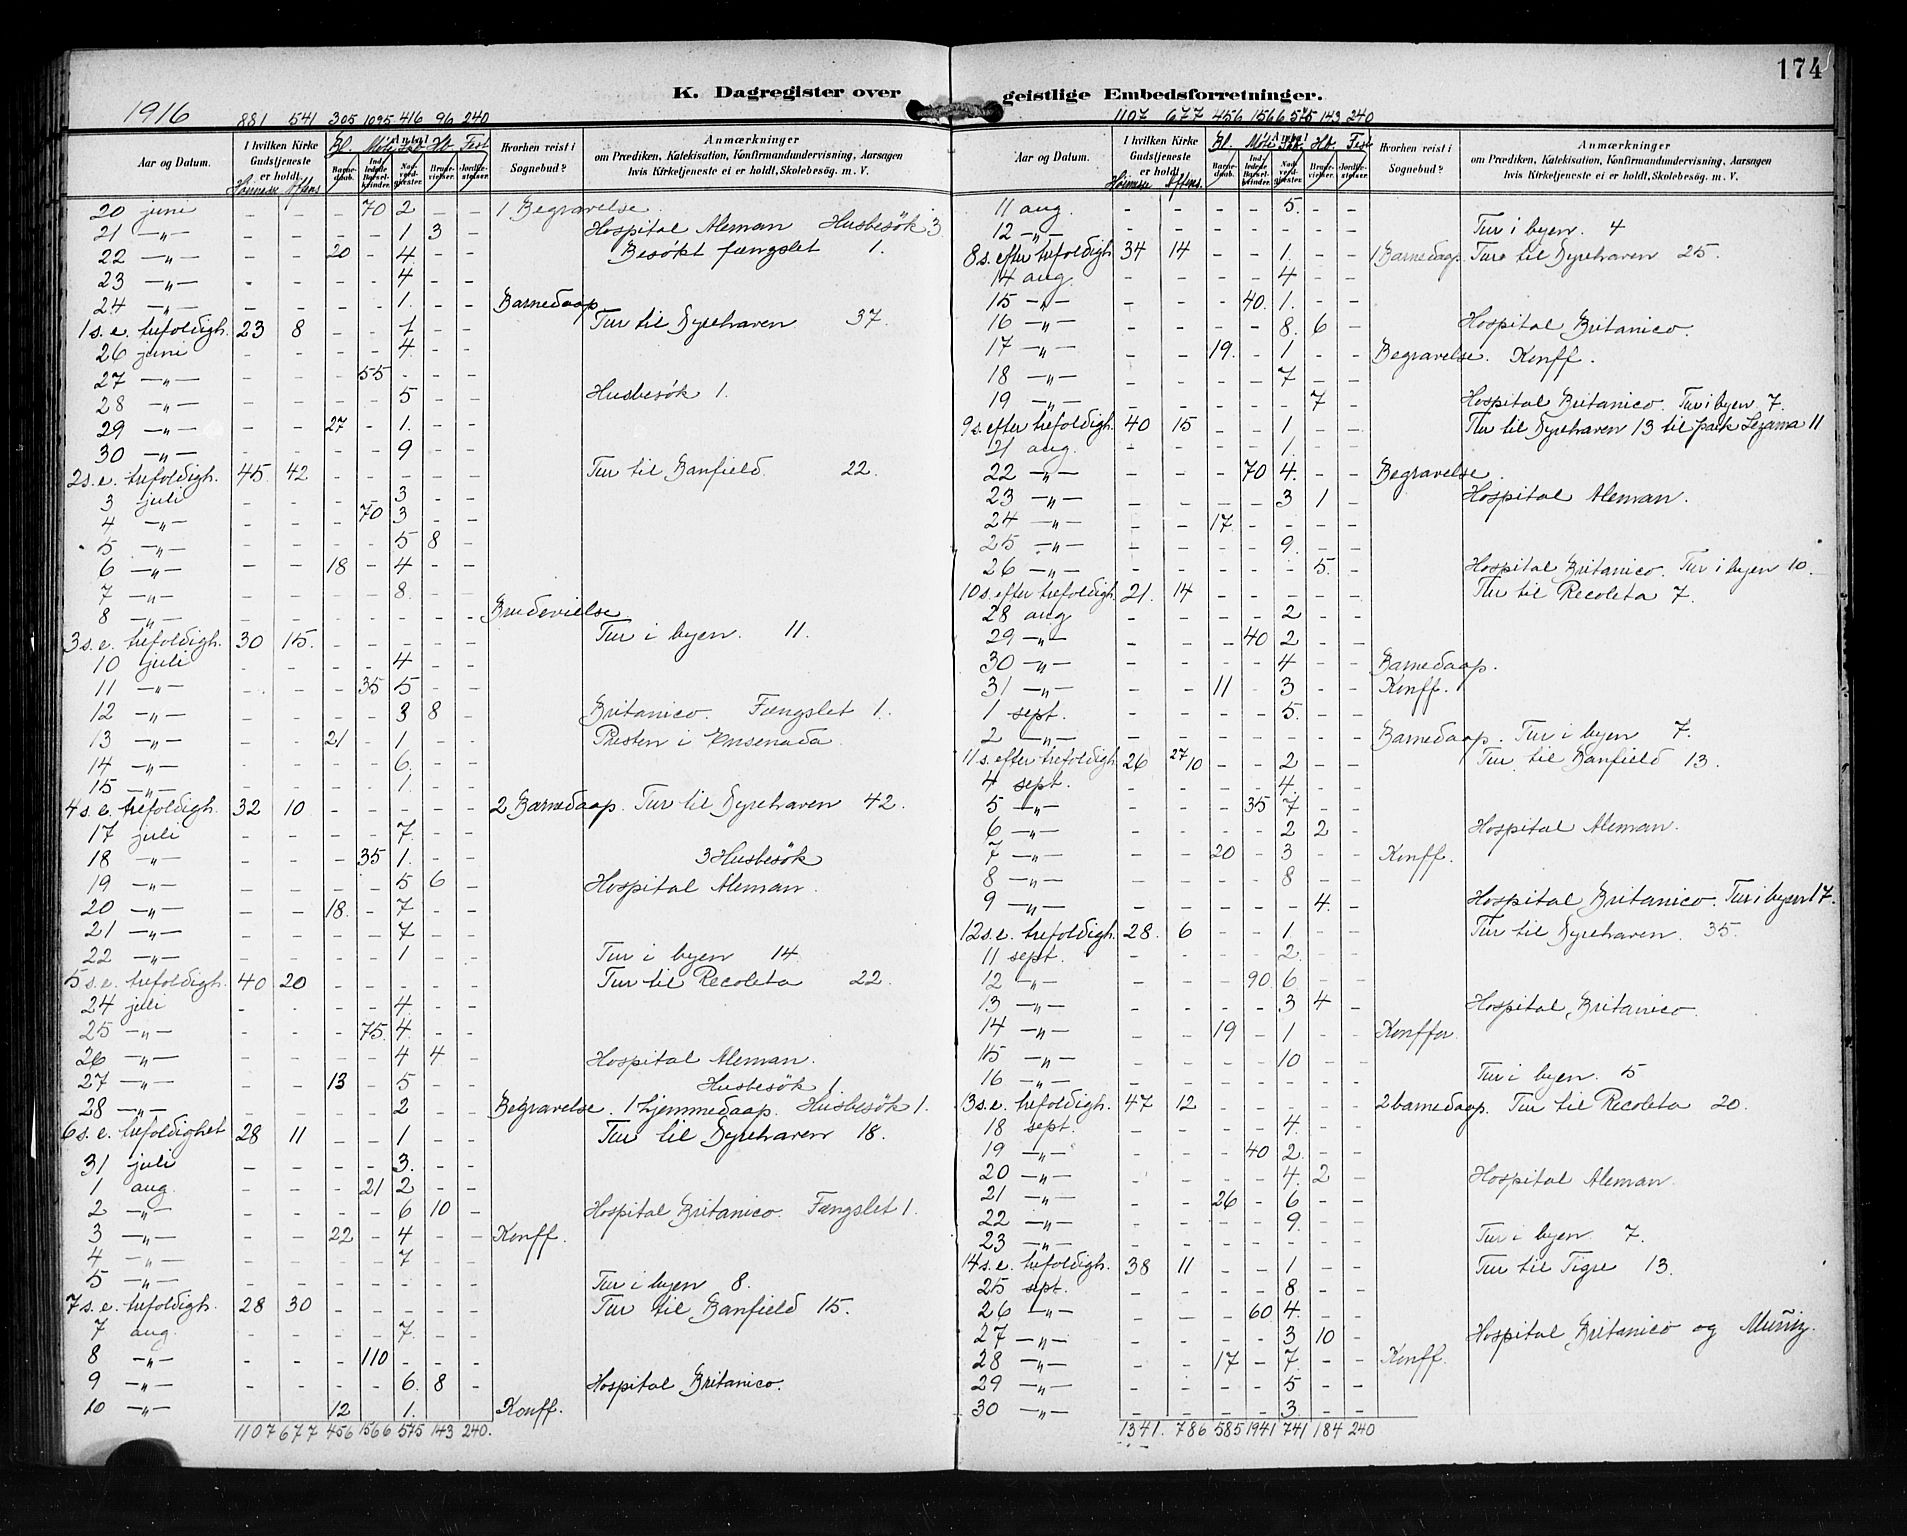 174
K. Dagregister over geistlige Embedsforretninger.
1916 881 541 305 1095 416 96 240
Aar og Datum.
I hvilken Kirke Gudstjeneste er holdt.
Høimesse Aftens
Bl. Möte Hb. Fest
Antal
Barnedaab.
Indledede Barselkvinder.
Nadverdgjester.
Brudevielser.
Jordfæstelser.
Hvorhen reist i Sognebud?
Anmærkninger
om Prædiken, Katekisation, Konfirmandundervisning, Aarsagen
hvis Kirketjeneste ei er holdt, Skolebesøg. m. V.
20 juni - - - 70 2 - - 1 Begravelse
21 -"- - - - - 1 3 - Hospital Aleman Husbesök 3
22 -"- - - 20 - 4 - - Besökt fængslet 1.
23 -"- - - - - 4 - -
24 -"- - - - - 1. - - Barnedaap
1 s. e. trefoldigh. 23 8 - - 1 - - Tur til Dyrehaven 37.
26 juni - - - - 4 - -
27 -"- - - - 55 - - -
28 -"- - - - - 5 - - Husbesök 1.
29 -"- - - 27 - 1. - -
30 -"- - - - - 9 - -
2 s. e. trefoldigh. 45 42 - - - - - Tur til Banfield. 22.
3 juli - - - - 3 - -
4 -"- - - - 70 3 - -
5 -"- - - - - 5 8 -
6 -"- - - 18 - 4 - -
7 -"- - - - - 8. - -
8 -"- - - - - - - - Brudevielse
3 s. e. trefoldigh. 30 15. - - - - - Tur i byen. 11.
10 juli - - - - 4 - -
11 -"- - - - 35 5 - -
12 -"- - - - - 3 8 - Britanico. Fængslet 1.
13 -"- - - 21 - 1 - - Presten i Ensenada.
14 -"- - - - - 6. - -
15 -"- - - - - 1. - -
4 s. e. trefoldigh. 32 10 - - - - - 2 Barnedaap. Tur til Dyrehaven 42.
17 juli - - - - 7. - -
18 -"- - - - 35 1. - - 3 Husbesök
19 -"- - - - - 5 6 - Hospital Aleman.
20 -"- - - 18. - 7 - -
21 -"- - - - - 7 - -
22 -"- - - - - 1 - - Tur i byen 14
5 s. e. trefoldigh. 40 20 - - - - - Tur til Recoleta 22.
24 juli - - - - 4. - -
25 -"- - - - 75. 4. - -
26 -"- - - - - 4 4 - Hospital Aleman.
27 -"- - - 13 - 5 - - Husbesök 1.
28 -"- - - - - 2 - - Begravelse. 1 hjemmedaap. Husbesök 1.
6 s. e. trefoldighet 28 11 - - 1 - - Tur til Dyrehaven 18.
31 juli - - - - 3. - -
1 aug. - - - 21 2 - -
2 -"- - - - - 6 10 - Hospital Britanico. Fængslet 1.
3 -"- - - 22 - 4 - - Konff.
4 -"- - - - - 7 - -
5 -"- - - - - - - - Tur i byen 8.
7 s. e. trefoldigh. 28 30 - - - - - Tur til Banfield 15.
7 aug. - - - - 7. - -
8 -"- - - - 110 - - -
9 -"- - - - - 6. 8 - Hospital Britanico.
10 -"- - - 12 - 1. - - Konff.
1107 677 456 1566 575 143 240.
1107 677 456 1566 575 143 240
Aar og Datum.
I hvilken Kirke Gudstjeneste er holdt.
Høimesse Aftens
Bl. Möte Hb. Fest
Antal
Barnedaab.
Indledede Barselkvinder.
Nadverdgjester.
Brudevielser.
Jordfæstelser.
Hvorhen reist i Sognebud?
Anmærkninger
om Prædiken, Katekisation, Konfirmandundervisning, Aarsagen
hvis Kirketjeneste ei er holdt, Skolebesøg. m. V.
11 aug. - - - - 5. - -
12 -"- - - - - - - - Tur i byen. 4
8 s. efter trefoldigh. 34 14 - - 1. - - 1 Barnedaap. Tur til Dyrehaven 25.
14 aug - - - - 4 - -
15 -"- - - - 40. 1. - -
16 -"- - - - - 8. 6 - Hospital Britanico.
17 -"- - - 19. - 1 - - Begravelse. Konff.
18 -"- - - - - 7 - -
19 -"- - - - - - 7 - Hospital Britanico. Tur i byen 7.
9 s. efter trefoldigh. 40 15 - - 1 - - Tur til Dyrehaven 13 til park Lezama 11
21 aug. - - - - 1. - -
22 -"- - - - 70 4. - - Begravelse.
23 -"- - - - - 3 1 - Hospital Aleman.
24 -"- - - 17. - - - -
25 -"- - - - - 9. - -
26 -"- - - - - - 5. - Hospital Britanico. Tur i byen 10.
10 s. efter trefoldigh. 21. 14 - - - - - Tur til Recoleta 7.
28 aug - - - - 2 - -
29 -"- - - - 40 2 - -
30 -"- - - - - 4 - - Barnedaap.
31 -"- - - 11 - 3 - - Konff.
1 sept. - - - - 5. - -
2 -"- - - - - - - - Barnedaap. Tur i byen 7.
11 s. efter trefoldigh. 26 27 10 - - 2 - - Tur til Banfield 13.
4 sept. - - - - 4. - -
5 -"- - - - 35 7 - -
6 -"- - - - - 2 2 - Hospital Aleman.
7 -"- - - 20 - 3 - - Konff.
8 -"- - - - - 8 - -
9 -"- - - - - - 4. - Hospital Britanico. Tur i byen 17.
12 s. e. trefoldigh. 28. 6 - - 1 - - Tur til Dyrehaven. 35.
11 sept. - - - - 2. - -
12 -"- - - - 90 6 - -
13 -"- - - - - 3 4 - Hospital Britanico.
14 -"- - - 19 - 1 - - Konffer
15 -"- - - - - 10 - -
16 -"- - - - - - - - Tur i byen. 5
13 s. e. trefoldigh. 47 12 - - - - - 2 barnedaap. Tur til Recoleta 20.
18 sept. - - - - 4. - -
19 -"- - - - 40 2. - -
20 -"- - - - - 4. 2 - Hospital Aleman.
21 -"- - - 26 - 6 - -
22 -"- - - - - 9. - -
23 -"- - - - - - - - Tur i byen 7.
14 s. e. trefoldigh. 38 11 - - 1 - - Tur til Tigre 13.
25 sept. - - - - 8. - -
26 -"- - - - 60 4. - -
27 -"- - - - - 3 10 - Hospital Britanico og
28 -"- - - 17 - 7. - - Konff.
29 -"- - - - - 5 - -
30 -"- - - - - 3. - -
1341. 786 585 1941 741 184 240